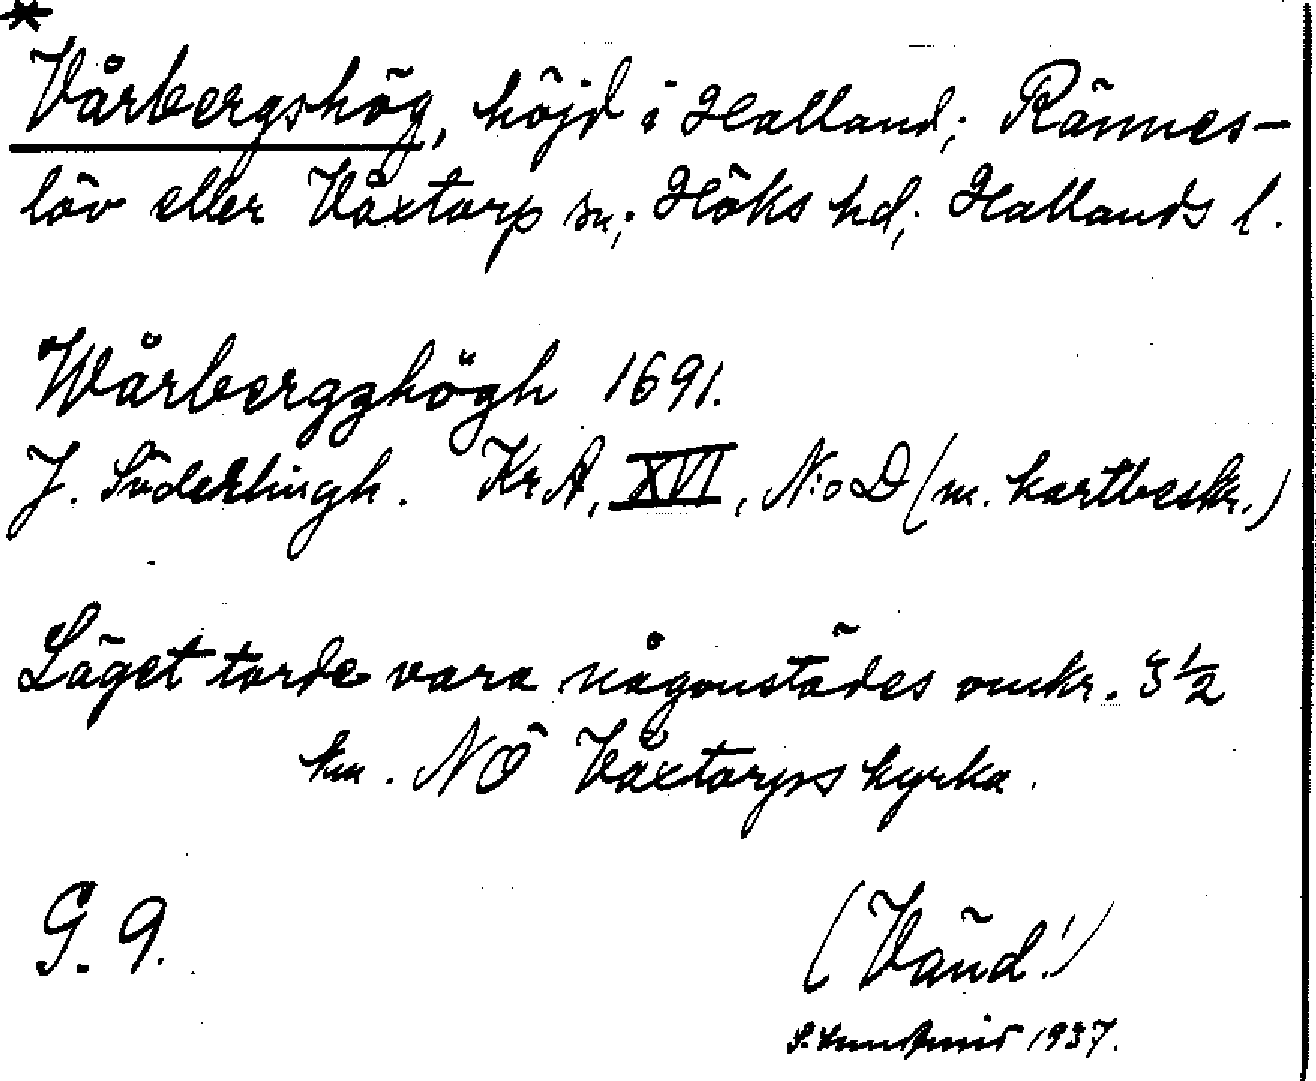 *
Vårbergshög, höjd i Halland; Rännes-
löv eller Våxtorp sn; Höks hd; Hallands l.
Wårbergzhögh 1691.
J. Söderlingh. KrA, XVI, N:o D (m. kartbeskr.)
Läget torde vara någonstädes omkr. 3 1/2
km. NÖ Våxtorps kyrka.
G. 9.
(Vänd!)
1937.